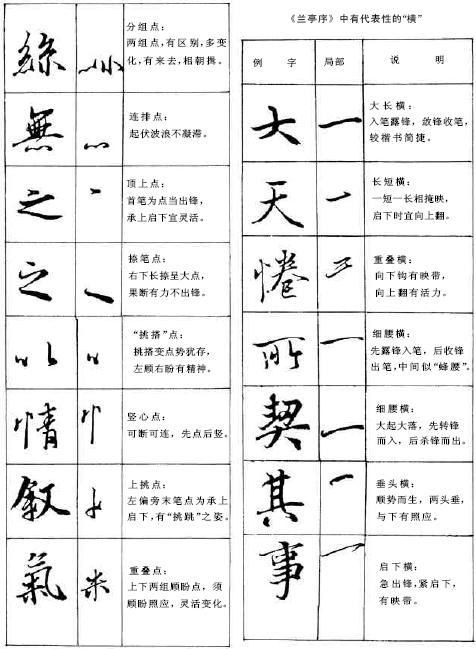 絲
分组点：
两组点，有区别，多变
化，有来去，相朝揖。
無
连排点：
起伏波浪不凝滞。
之
顶上点：
首笔为点当出锋，
承上启下宜灵活。
之
捺笔点：
右下长捺呈大点，
果断有力不出锋。
以
“挑搭”点：
挑搭变点势犹存，
左顾右盼有精神。
情
竖心点：
可断可连，先点后竖。
叙
上挑点：
左偏旁末笔点为承上
启下，有“挑跳”之姿。
氣
重叠点：
上下两组顾盼点，须
顾盼照应，灵活变化。
《兰亭序》中有代表性的“横”
例 字 局部 说 明
大
大长横：
入笔露锋，敛锋收笔，
较楷书简捷。
天
长短横：
一短一长相掩映，
启下时宜向上翻。
惓
重叠横：
向下钩有映带，
向上翻有活力。
所
细腰横：
先露锋入笔，后收锋
出笔，中间似“蜂腰”。
契
细腰横：
大起大落，先转锋
而入，后杀锋而出。
其
垂头横：
顺势而生，两头垂，
与下有照应。
事
启下横：
急出锋，紧启下，
有映带。